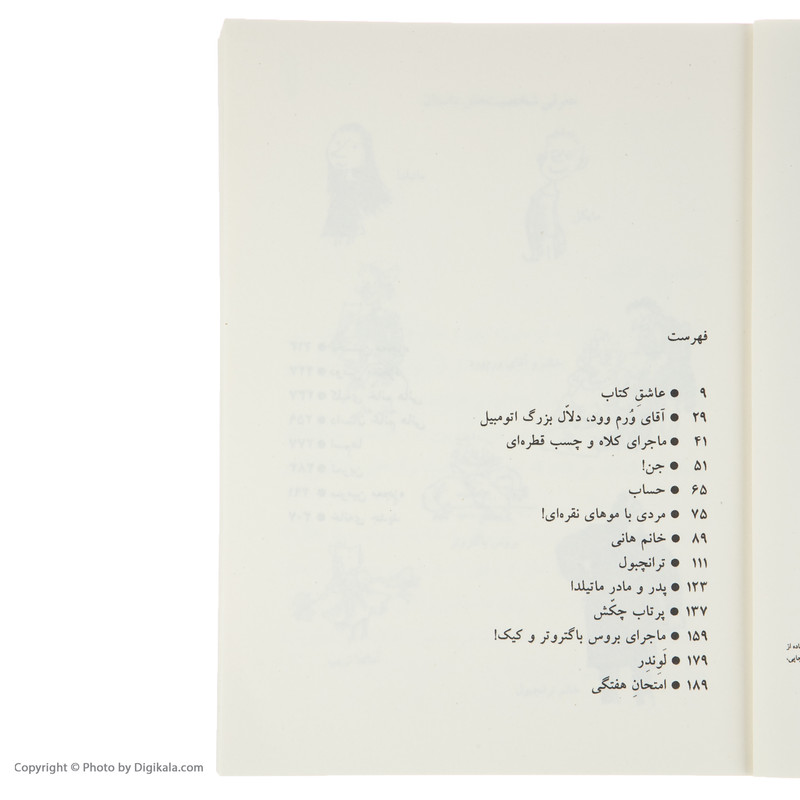 فهرست
۹ ● عاشقِ کتاب
۲۹ ● آقای وُرم وود، دلاّل بزرگ اتومبیل
۴۱ ● ماجرای کلاه و چسب قطره‌ای
۵۱ ● جن!
۶۵ ● حساب
۷۵ ● مردی با موهای نقره‌ای!
۸۹ ● خانم هانی
۱۱۱ ● ترانچبول
۱۲۳ ● پدر و مادرِ ماتیلدا
۱۳۷ ● پرتاب چکّش
۱۵۹ ● ماجرای بروس باگتروتر و کیک!
۱۷۹ ● لَوِندِر
۱۸۹ ● امتحانِ هفتگی
Copyright © Photo by Digikala.com